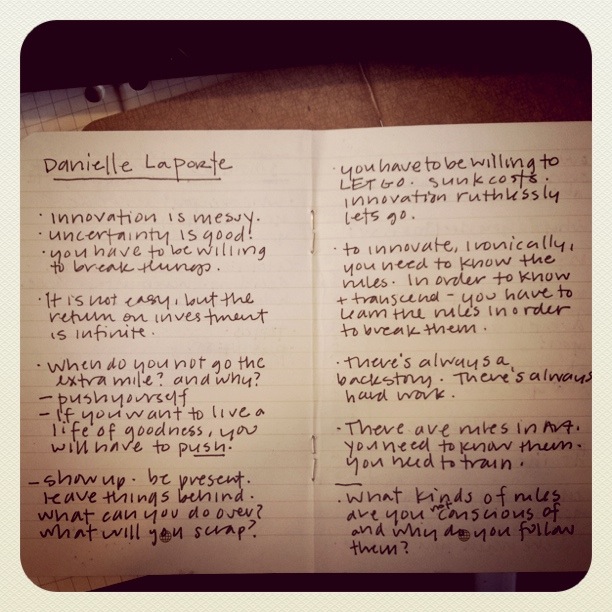 Danielle LaPorte
· innovation is messy.
· uncertainty is good!
· you have to be willing
to break things.
· It is not easy, but the
return on investment
is infinite.
· when do you not go the
extra mile? and why?
- push yourself
- If you want to live a
life of goodness, you
will have to push.
- show up. be present.
leave things behind.
what can you do over?
what will you scrap?
· you have to be willing to
LET GO. sunk costs.
innovation ruthlessly
lets go.
· to innovate, ironically,
you need to know the
rules. In order to know
+ transcend - you have to
learn the rules in order
to break them.
· There's always a
backstory. There's always
hard work.
· There are rules in Art.
you need to know them.
you need to train.
· what kinds of rules
are you not conscious of
and why do you follow
them?